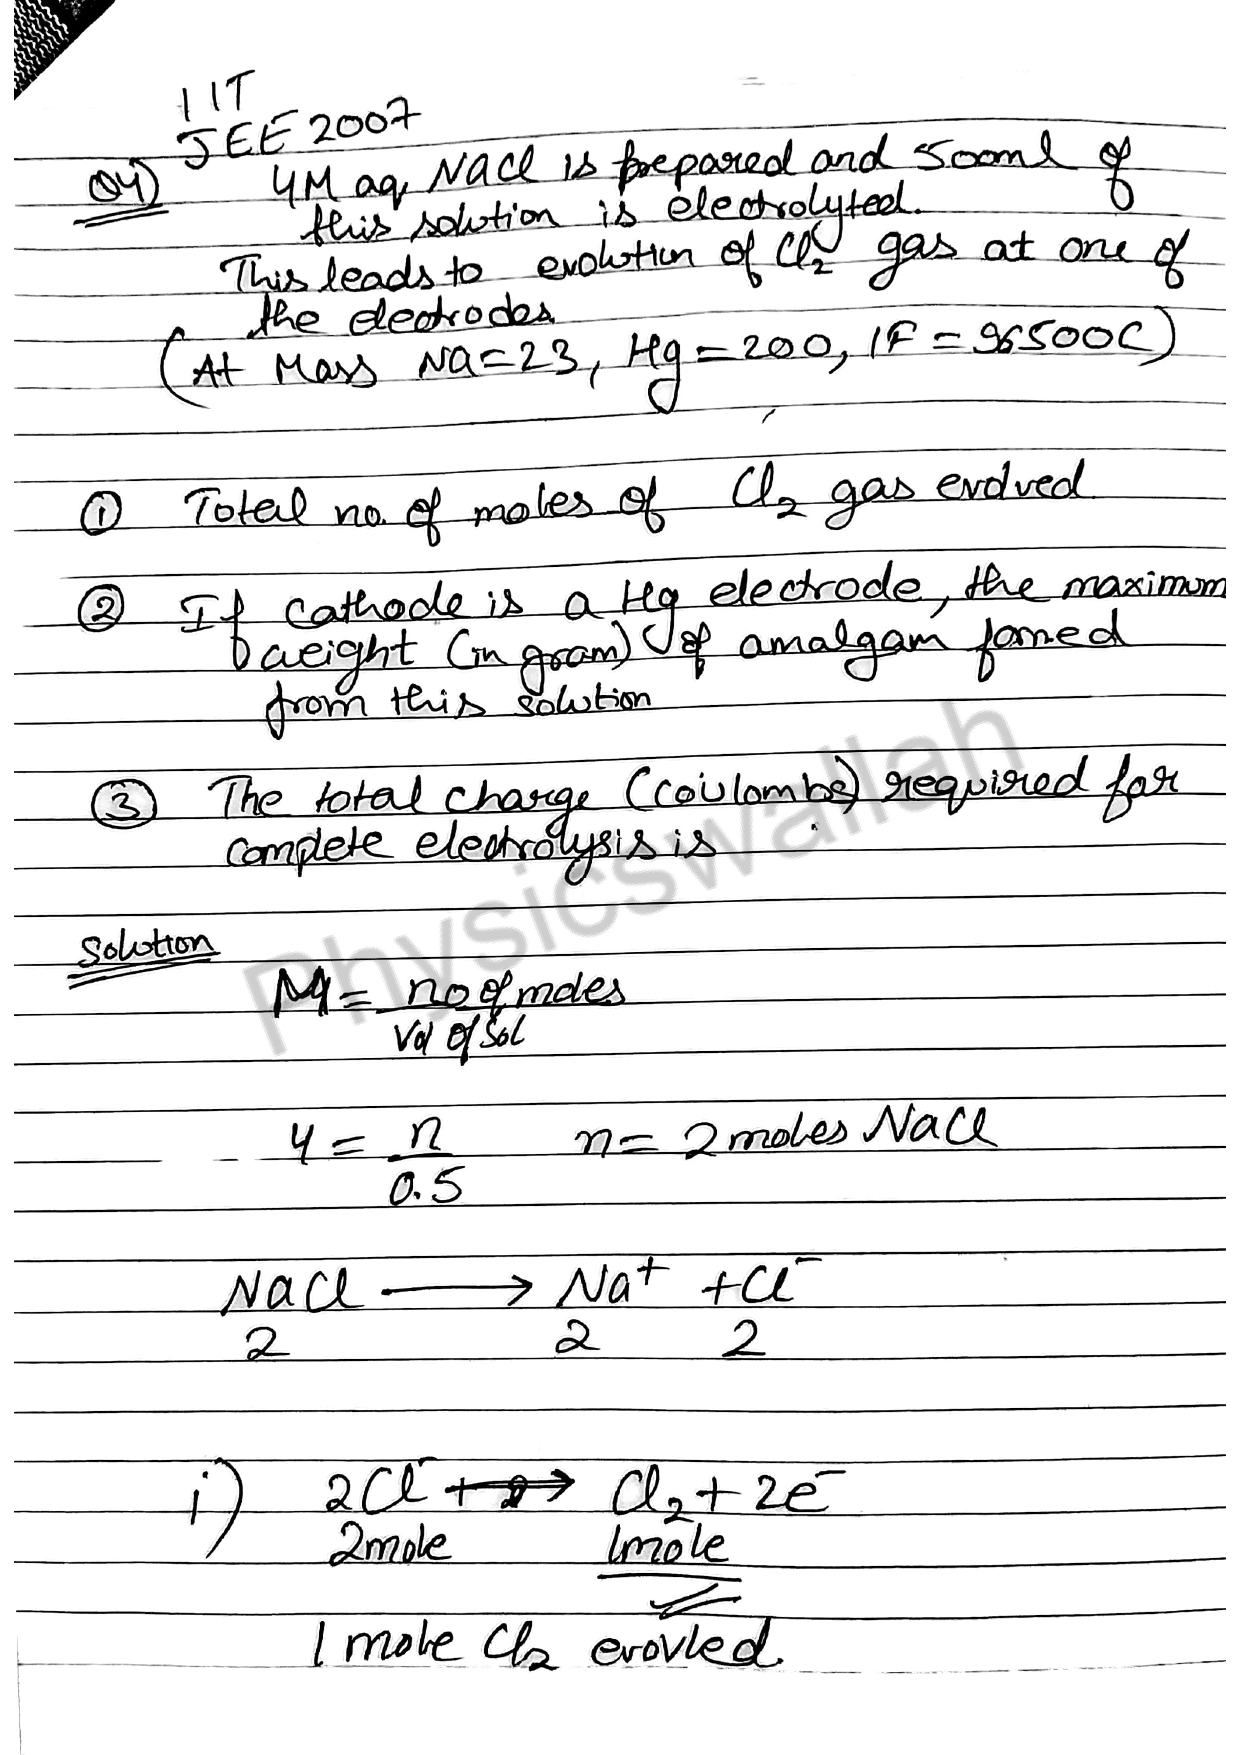 IIT
JEE 2007
Q4) 4M aq NaCl is prepared and 500ml of
this solution is electrolyted.
This leads to evolution of Cl₂ gas at one of
the electrodes.
(At Mass Na=23, Hg=200, 1F=96500C)
① Total no. of moles of Cl₂ gas evolved
② If cathode is a Hg electrode, the maximum
weight (in gram) of amalgam formed
from this solution
③ The total charge (coulombs) required for
complete electrolysis is
Solution
M = no of moles
Vol of Sol
4 = n n = 2 moles NaCl
0.5
NaCl ⟶ Na⁺ + Cl⁻
2 2 2
i) 2Cl⁻ → Cl₂ + 2e⁻
2mole 1mole
1 mole Cl₂ erovled.
Physicswallah